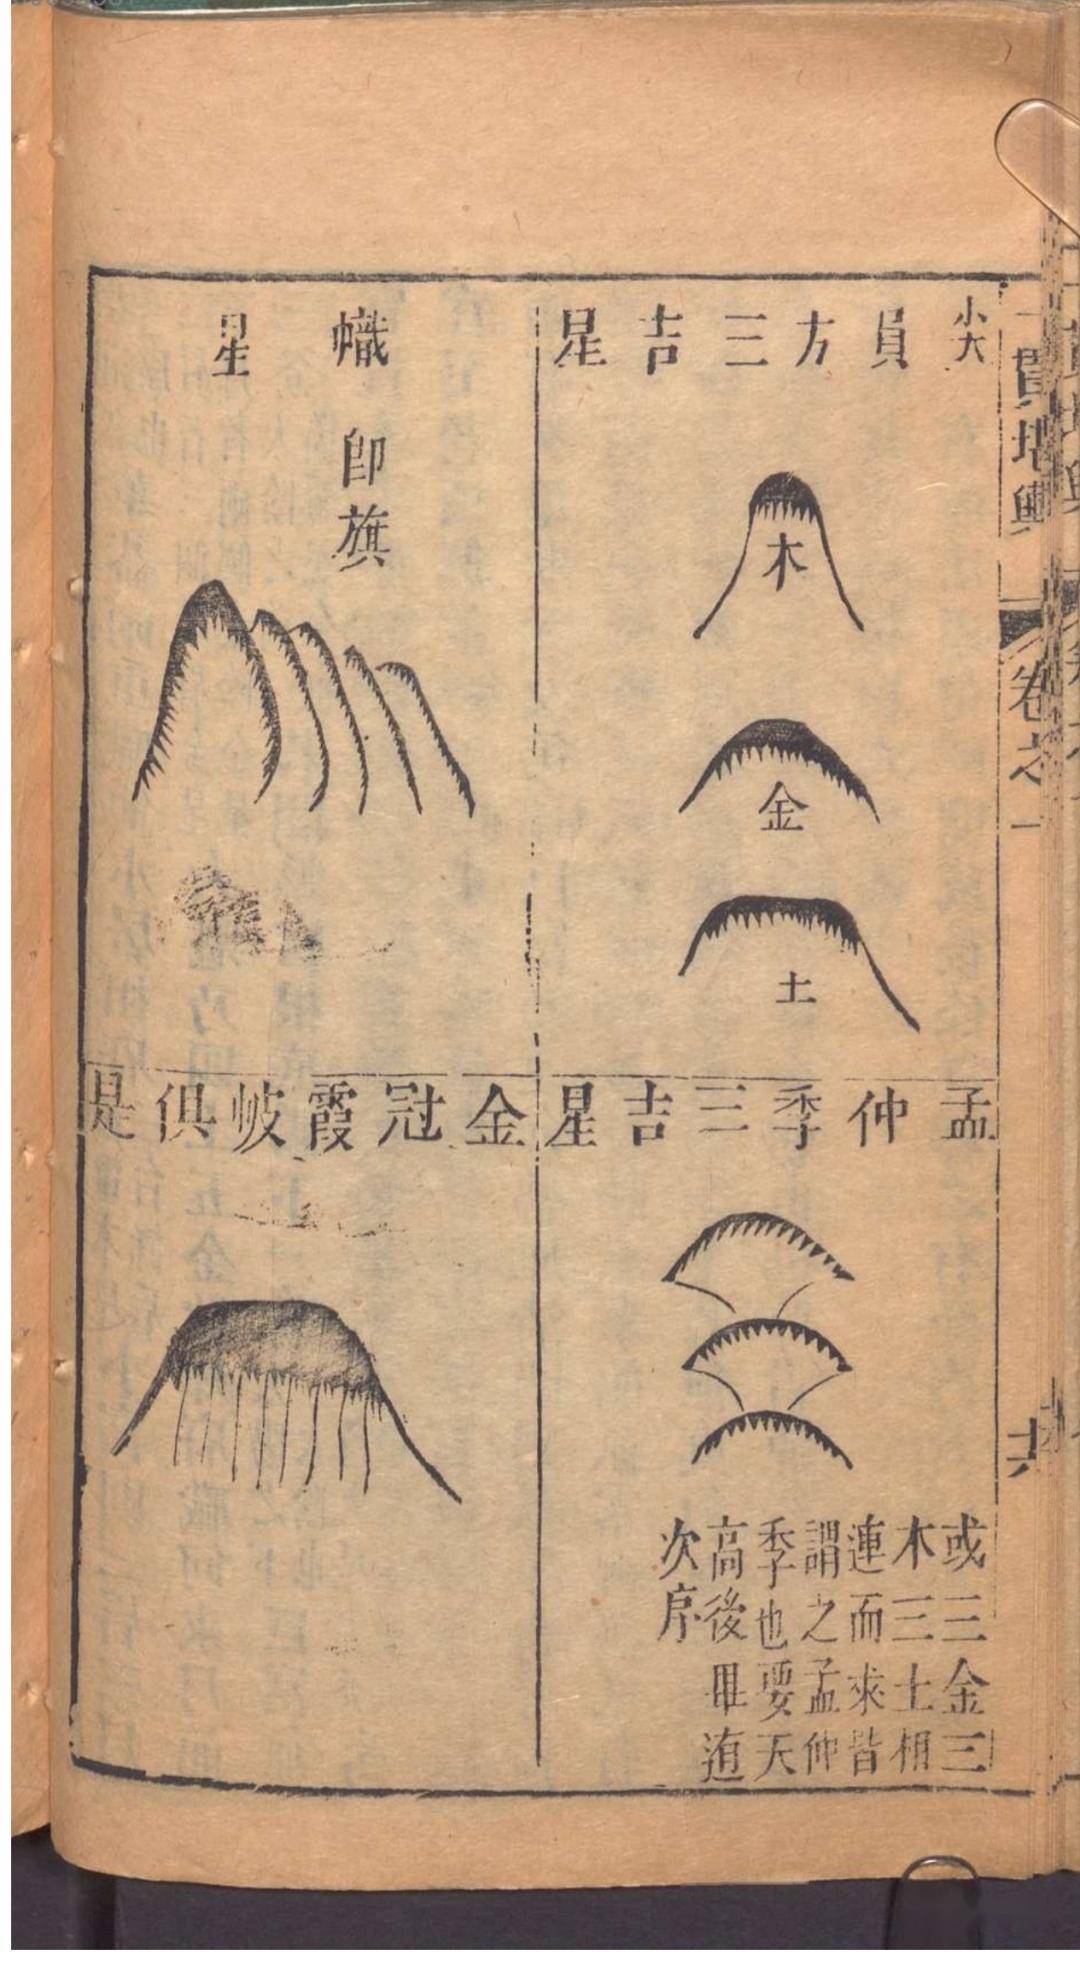 一貫堪輿
卷之一
尖員方三吉星
木
金
土
孟仲季三吉星
或三金三
木三土相
連而來皆
謂之孟仲
季也要天
高後畢道
次序
幟星
卽旗
金冠霞帔俱是